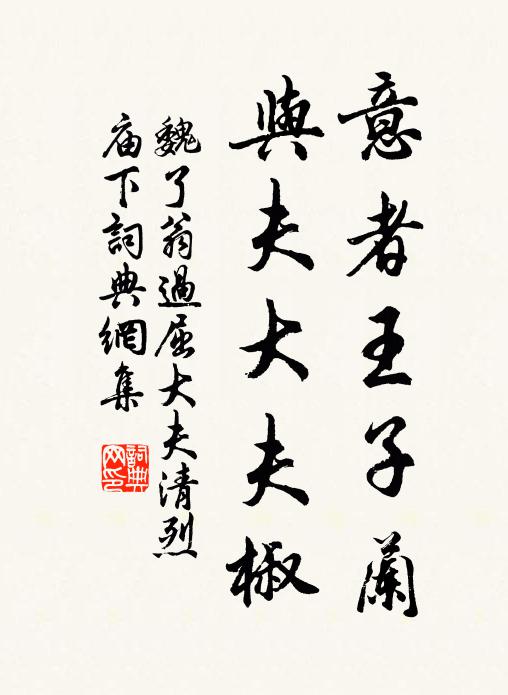 意者王子蘭
與夫大夫椒
魏了翁過屈大夫清烈
庙下詞典網集
詞典网印